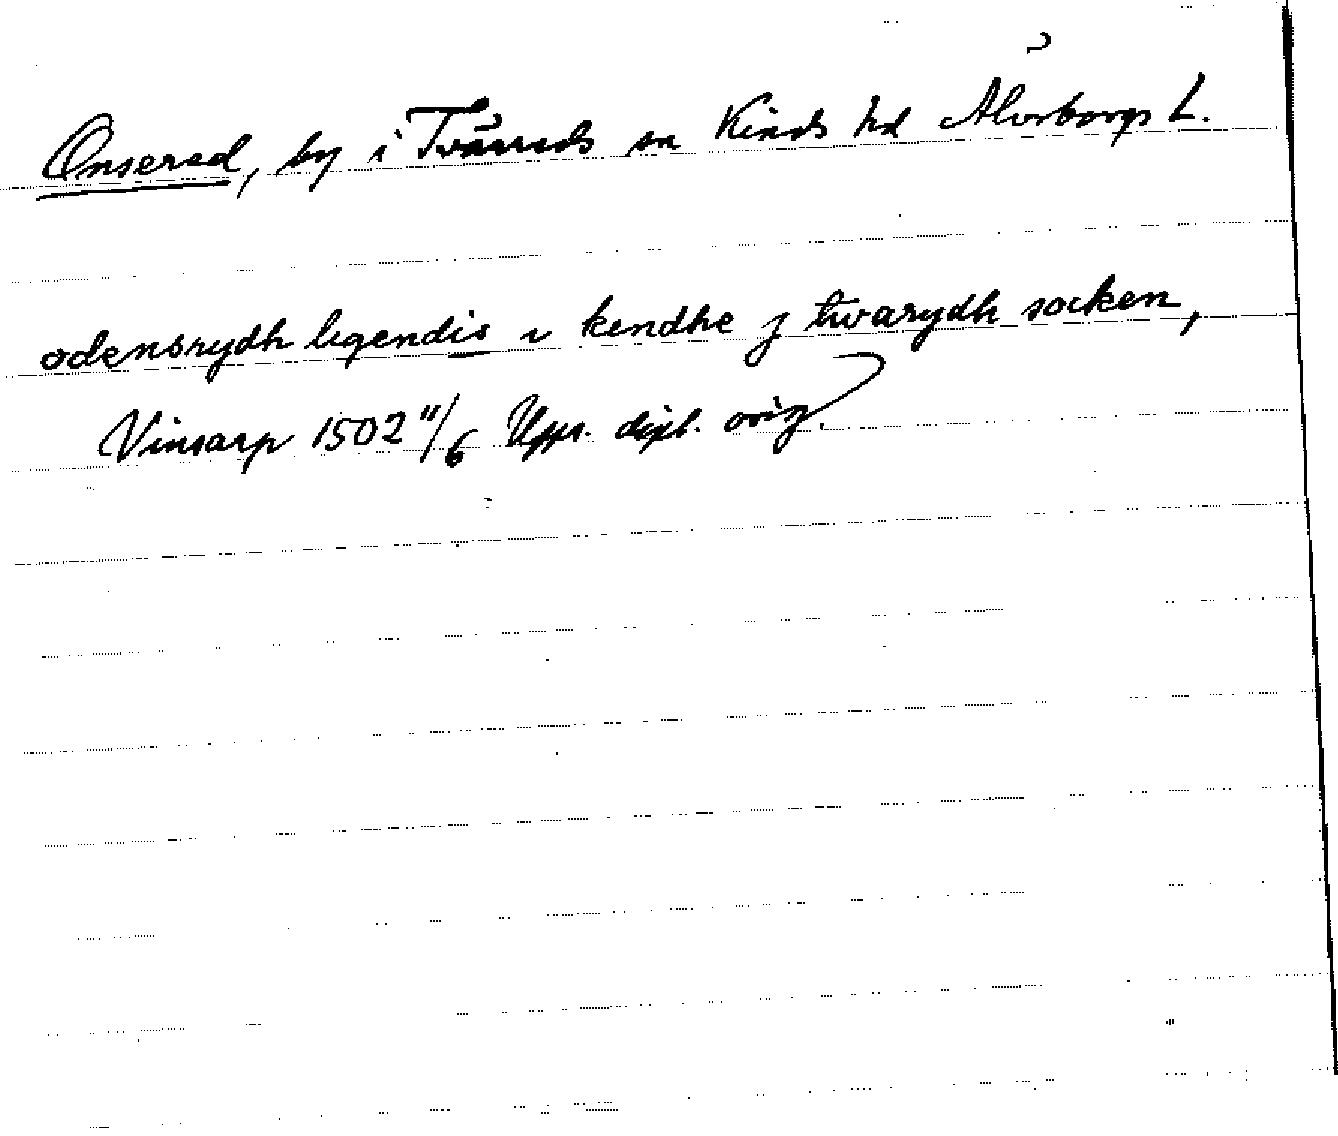 Onsered, by i Tvärreds sn Kinds hd Älvsborgs L.
odensrydh legendis i kendhe j twarydh socken,
Vinsarp 1502 11/6 Upps. dipl. orig.